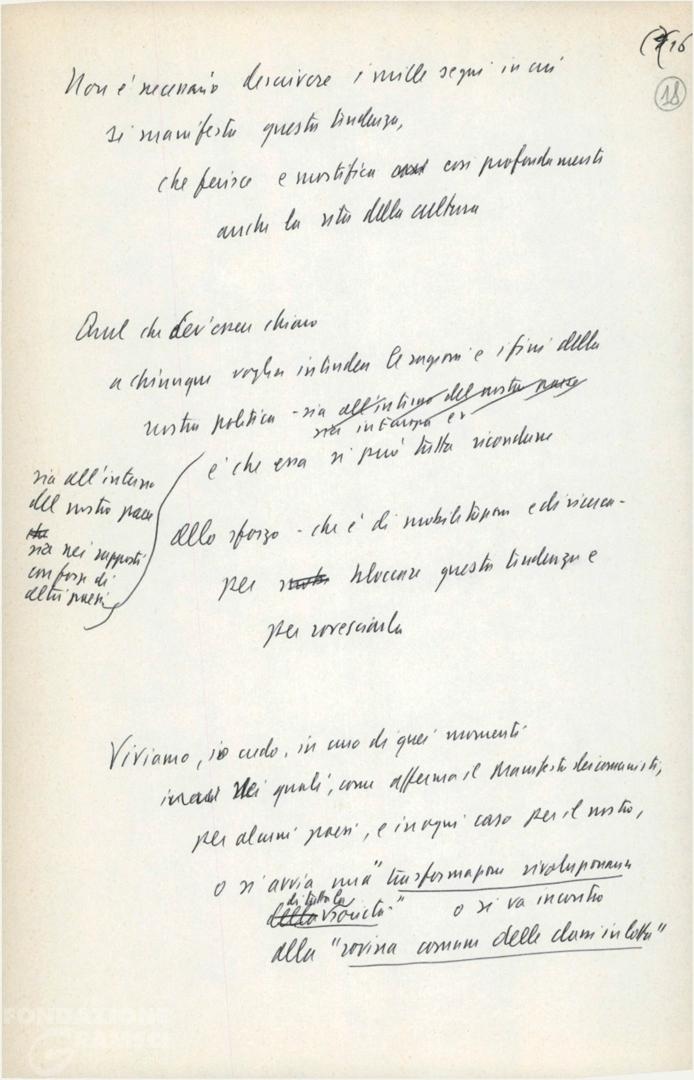 16
18
Non è necessario descrivere i mille segni in cui
si manifesta questa tendenza,
che ferisce e mortifica così profondamente
anche la vita della cultura
Quel che dev'essere chiaro
a chiunque voglia intendere le ragioni e i fini della
nostra politica - sia all'interno del nostro paese
sia in Europa e
è che essa si può tutta ricondurre
sia all'interno
del nostro paese
sia nei rapporti
con forze di
altri paesi
allo sforzo - che è di mobilitazione e di ricerca -
per bloccare questa tendenza e
per rovesciarla
Viviamo, io credo, in uno di quei momenti
nei quali, come afferma il Manifesto dei comunisti,
per alcuni paesi, e in ogni caso per il nostro,
o si avvia una "trasformazione rivoluzionaria
di tutta la
della società" o si va incontro
alla "rovina comune delle classi in lotta"
FONDAZIONE
GRAMSCI